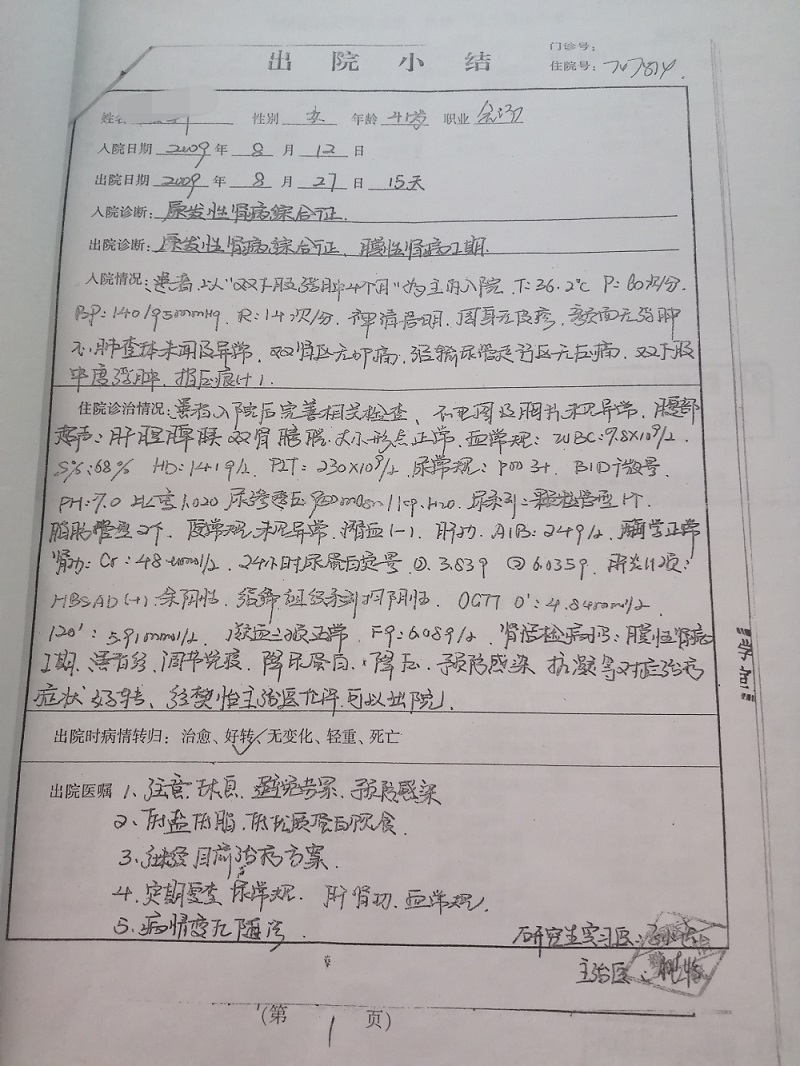 出院小结
门诊号:
住院号:
姓名 性别 女 年龄 41岁 职业
入院日期 2009 年 8 月 12 日
出院日期 2009 年 8 月 27 日 15天
入院诊断: 原发性肾病综合征.
出院诊断: 原发性肾病综合征、膜性肾病I期.
入院情况: 患者以"双下肢浮肿4个月"为主诉入院. T:36.2℃ P:60次/分.
BP:140/95mmHg, R:14次/分. 神清 周身无皮疹, 颜面无浮肿
心肺查体未闻及异常, 双肾区无叩痛, 经输尿管走行区无压痛, 双下肢
中度浮肿, 指压痕(+).
住院诊治情况: 患者入院后完善相关检查、心电图及胸片未见异常. 腹部
超声: 肝胆脾胰双肾膀胱大小形态正常. 血常规: WBC:9.8×10⁹/L
S%:68% Hb:141g/L PLT:230×10⁹/L 尿常规: pro 3+ BLD 微量
PH:7.0 比重1.020 尿渗透压 尿系列: 颗粒管型1个.
脂肪管型2个. 便常规未见异常. 潜血(-). 肝功: ALB:24g/L, 酶学正常
肾功: Cr:48umol/L, 24小时尿蛋白定量 ①. 3.83g ② 6.035g. 肝炎
HBSAb(+) 余阴性. 结缔组织系列均阴性. OGTT 0':4.84mmol/L
120':5.91mmol/L. 凝血三项正常 Fg:6.08g/L. 肾活检病回: 膜性肾病
I期. 患者经 调节免疫、降尿蛋白、降压、预防感染 抗凝等对症治疗
症状好转、经樊怡主治医允许可以出院.
出院时病情转归: 治愈、好转、无变化、轻重、死亡
出院医嘱 1. 注意休息, 避免劳累. 预防感染
2. 低盐低脂. 低优质蛋白饮食.
3. 继续目前治疗方案.
4. 定期复查尿常规. 肝肾功. 血常规.
5. 病情变化随诊.
研究生实习医:
主治医:
(第 1 页)